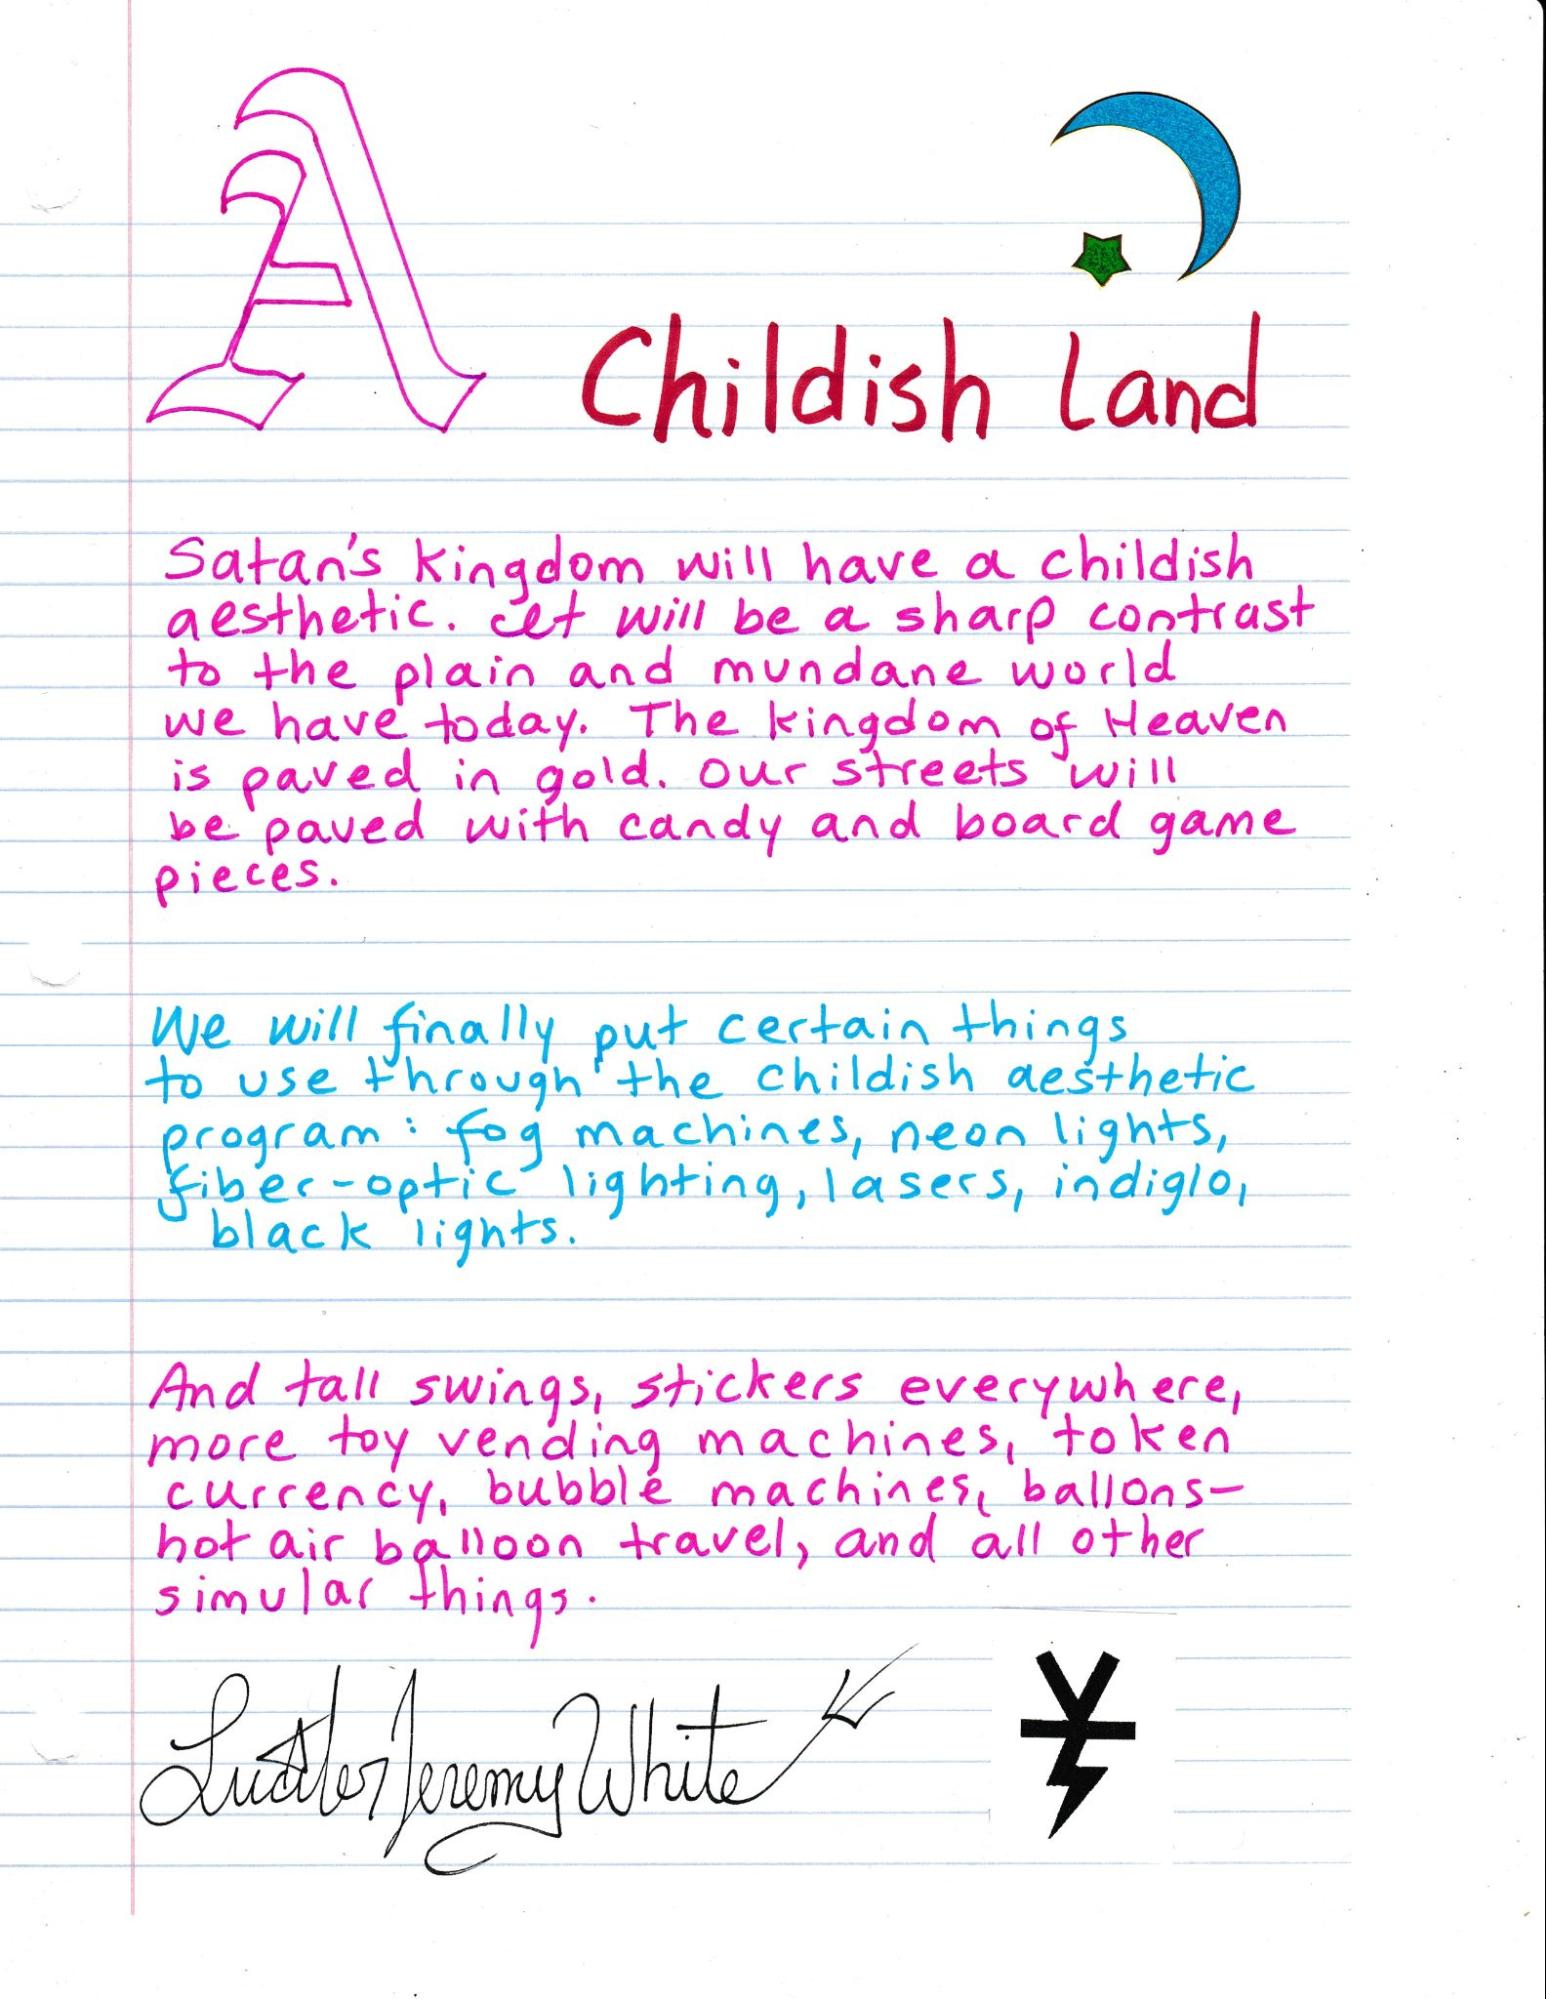 A Childish Land
Satan's kingdom will have a childish
aesthetic. It will be a sharp contrast
to the plain and mundane world
we have today. The kingdom of Heaven
is paved in gold. Our streets will
be paved with candy and board game
pieces.
We will finally put certain things
to use through the childish aesthetic
program: fog machines, neon lights,
fiber-optic lighting, lasers, indiglo,
black lights.
And tall swings, stickers everywhere,
more toy vending machines, token
currency, bubble machines, ballons-
hot air balloon travel, and all other
simular things.
Jeremy White